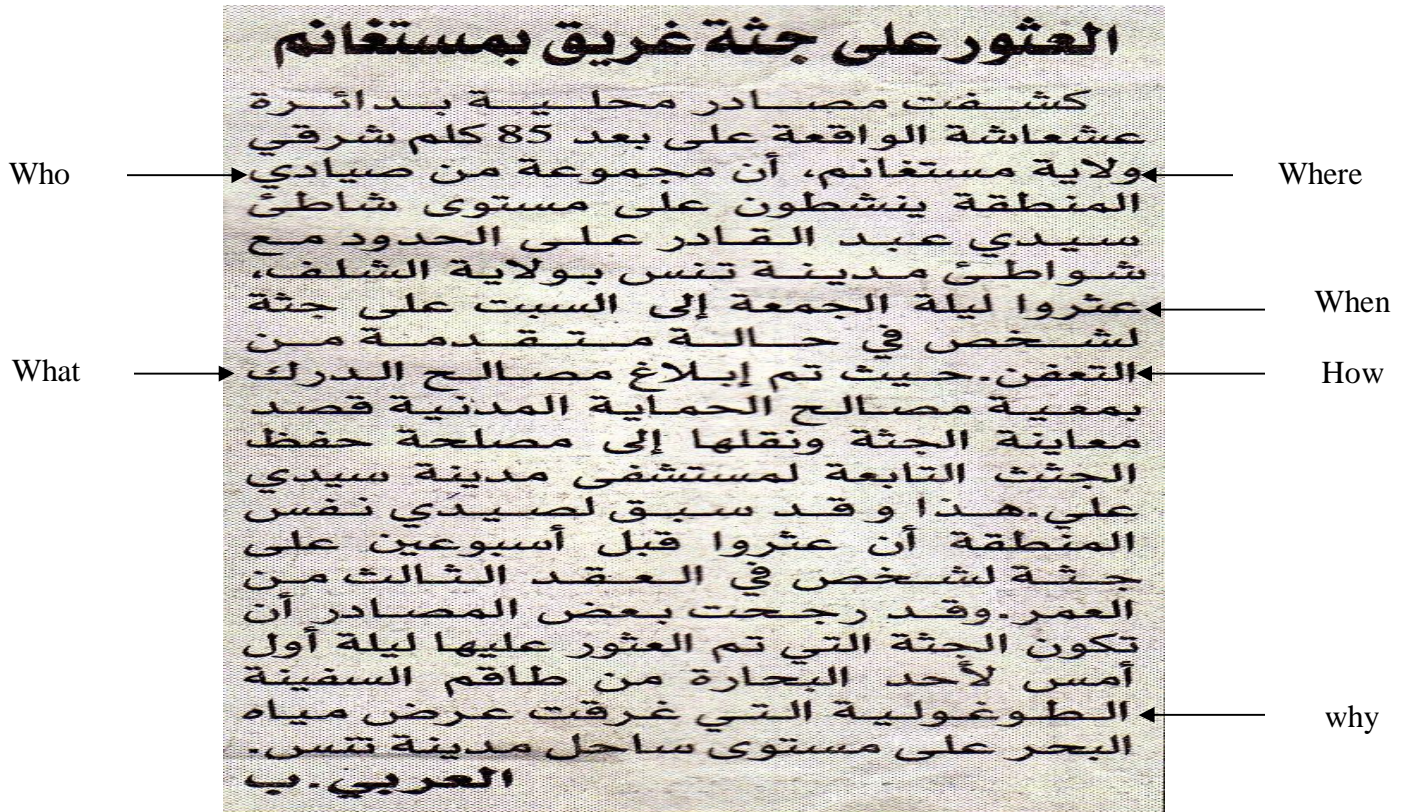 العثور على جثة غريق بمستغانم
كشفت مصادر محلية بدائرة
عشعاشة الواقعة على بعد 85 كلم شرقي
Who
ولاية مستغانم، أن مجموعة من صيادي
Where
المنطقة ينشطون على مستوى شاطئ
سيدي عبد القادر على الحدود مع
شواطئ مدينة تنس بولاية الشلف،
عثروا ليلة الجمعة إلى السبت على جثة
When
لشخص في حالة متقدمة من
What
التعفن.حيث تم إبلاغ مصالح الدرك
How
بمعية مصالح الحماية المدنية قصد
معاينة الجثة ونقلها إلى مصلحة حفظ
الجثث التابعة لمستشفى مدينة سيدي
علي.هذا وقد سبق لصيدي نفس
المنطقة أن عثروا قبل أسبوعين على
جثة لشخص في العقد الثالث من
العمر.وقد رجحت بعض المصادر أن
تكون الجثة التي تم العثور عليها ليلة أول
أمس لأحد البحارة من طاقم السفينة
الطوغولية التي غرقت عرض مياه
why
البحر على مستوى ساحل مدينة تنس.
العربي.ب